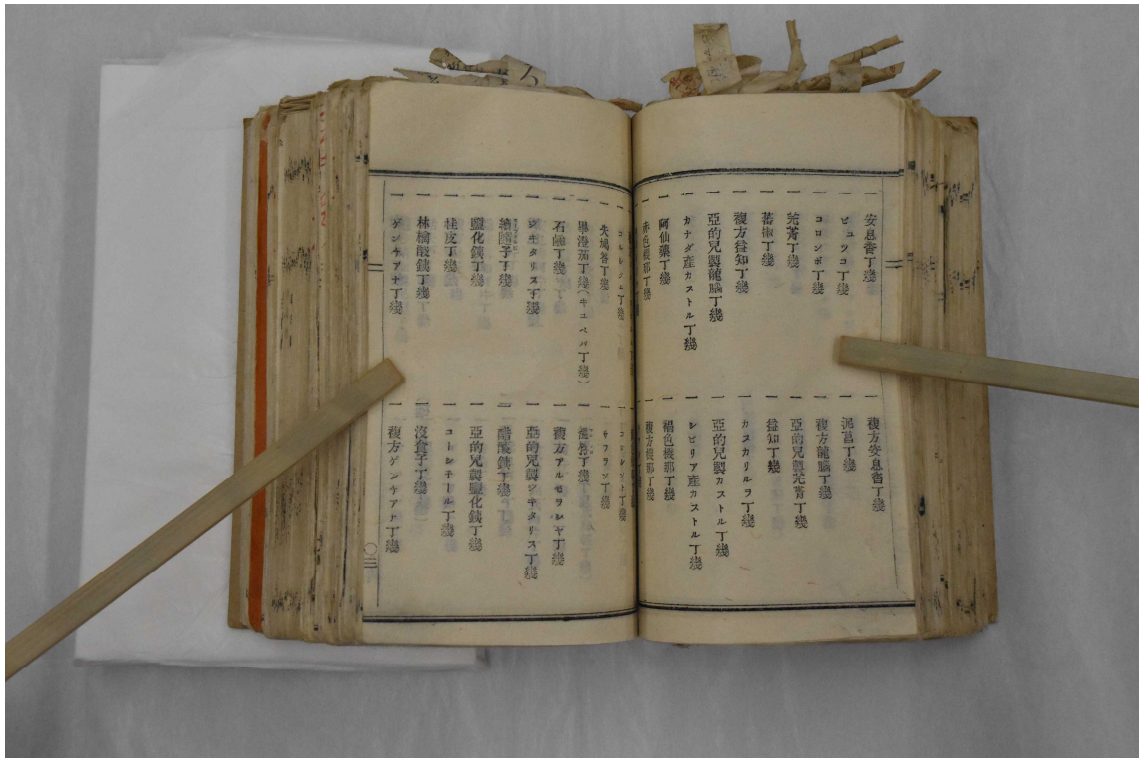 一 安息香丁幾
一 ビユツコ丁幾
一 コロンボ丁幾
一 芫菁丁幾
一 蕃椒丁幾
一 複方益知丁幾
一 亞的兒製龍腦丁幾
一 カナダ産カストル丁幾
一 阿仙藥丁幾
一 赤色機那丁幾
一 複方安息香丁幾
一 泥菖丁幾
一 複方龍腦丁幾
一 亞的兒製芫菁丁幾
一 益知丁幾
一 カスカリルラ丁幾
一 亞的兒製カストル丁幾
一 シビリア産カストル丁幾
一 褐色機那丁幾
一 複方機那丁幾
一 コルシクム丁幾
一 失鳩答丁幾
一 蓽澄茄丁幾(キユベバ丁幾)
一 石鹸丁幾
一 ジキタリス丁幾
一 鹽化鐵丁幾
一 桂皮丁幾
一 林檎酸鐵丁幾
一 ゲンチアナ丁幾
一 サフラン丁幾
一 複方アルセヲシヤ丁幾
一 亞的兒製ジキタリス丁幾
一 醋酸鐵丁幾
一 亞的兒製鹽化鐵丁幾
一 コトシチール丁幾
一 沒食子丁幾
一 複方ゲンチアナ丁幾